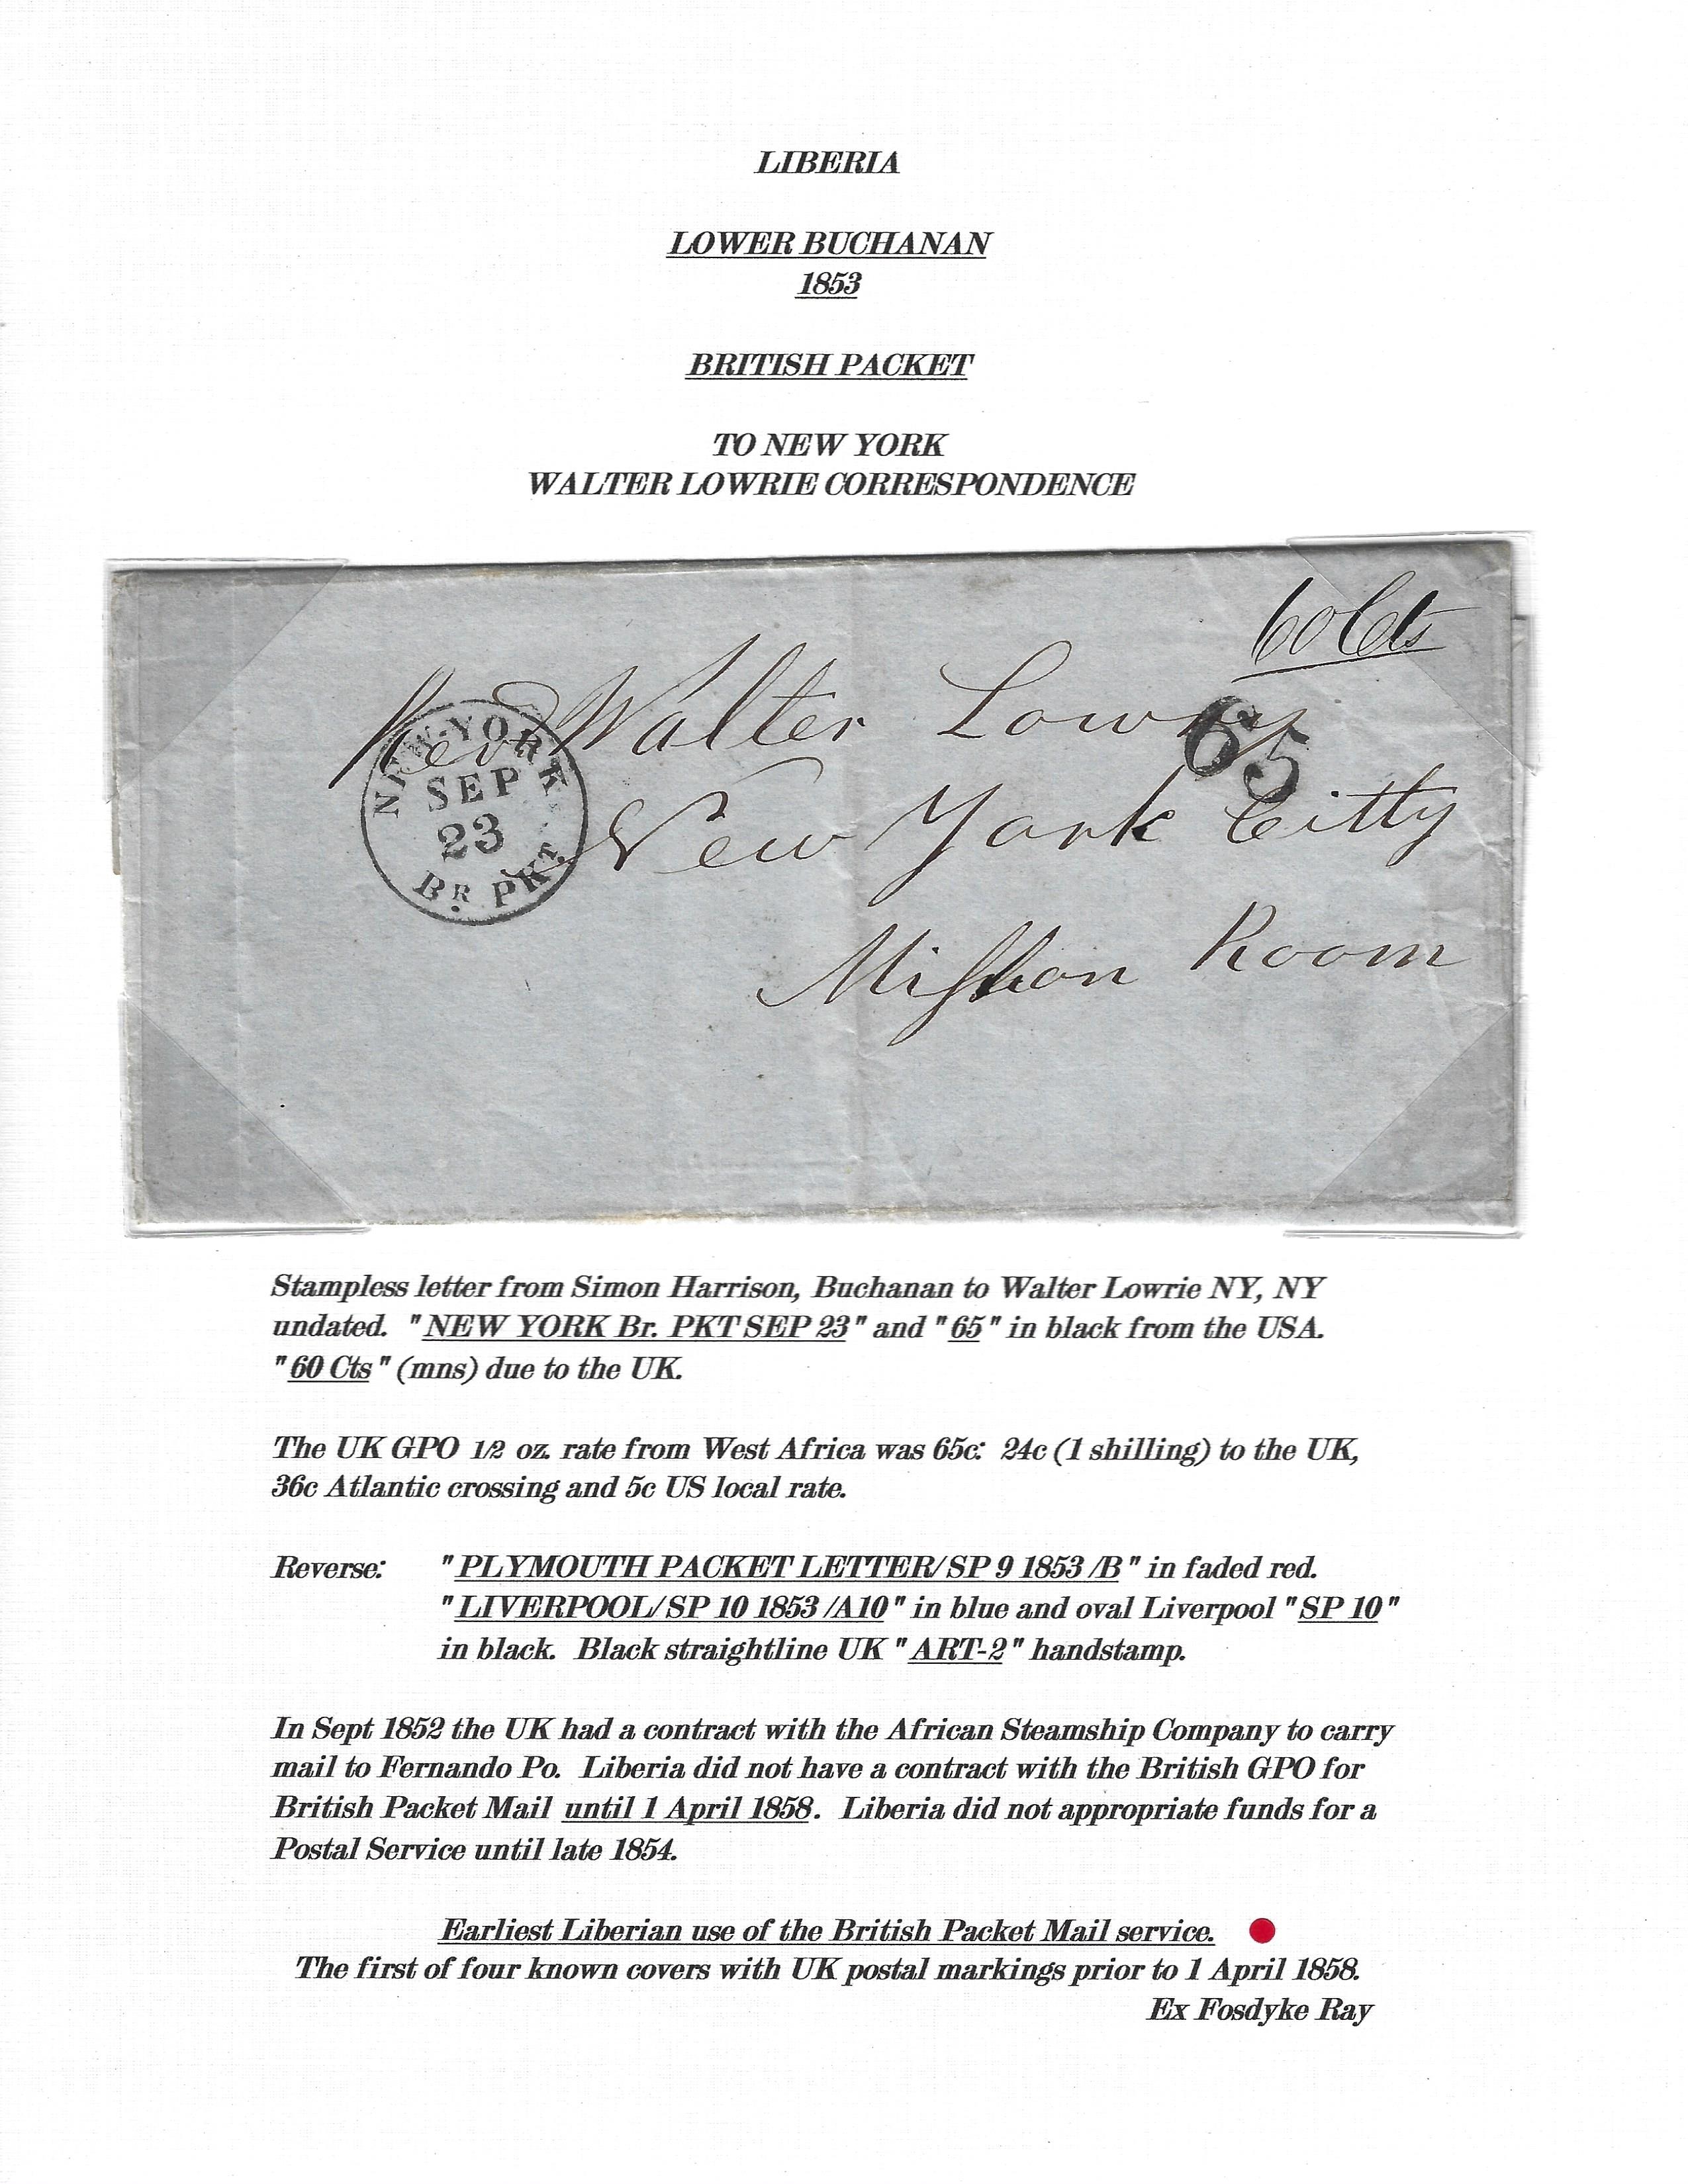 LIBERIA
LOWER BUCHANAN
1853
BRITISH PACKET
TO NEW YORK
WALTER LOWRIE CORRESPONDENCE
60 Cts
Revd Walter Lowry
65
NEW-YORK
SEP
23
BR. PKT.
New York Citty
Mission Room
Stampless letter from Simon Harrison, Buchanan to Walter Lowrie NY, NY
undated. "NEW YORK Br. PKT SEP 23" and "65" in black from the USA.
"60 Cts" (mns) due to the UK.
The UK GPO 1/2 oz. rate from West Africa was 65c: 24c (1 shilling) to the UK,
36c Atlantic crossing and 5c US local rate.
Reverse: "PLYMOUTH PACKET LETTER/SP 9 1853 /B" in faded red.
"LIVERPOOL/SP 10 1853 /A10" in blue and oval Liverpool "SP 10"
in black. Black straightline UK "ART-2" handstamp.
In Sept 1852 the UK had a contract with the African Steamship Company to carry
mail to Fernando Po. Liberia did not have a contract with the British GPO for
British Packet Mail until 1 April 1858. Liberia did not appropriate funds for a
Postal Service until late 1854.
Earliest Liberian use of the British Packet Mail service.
The first of four known covers with UK postal markings prior to 1 April 1858.
Ex Fosdyke Ray